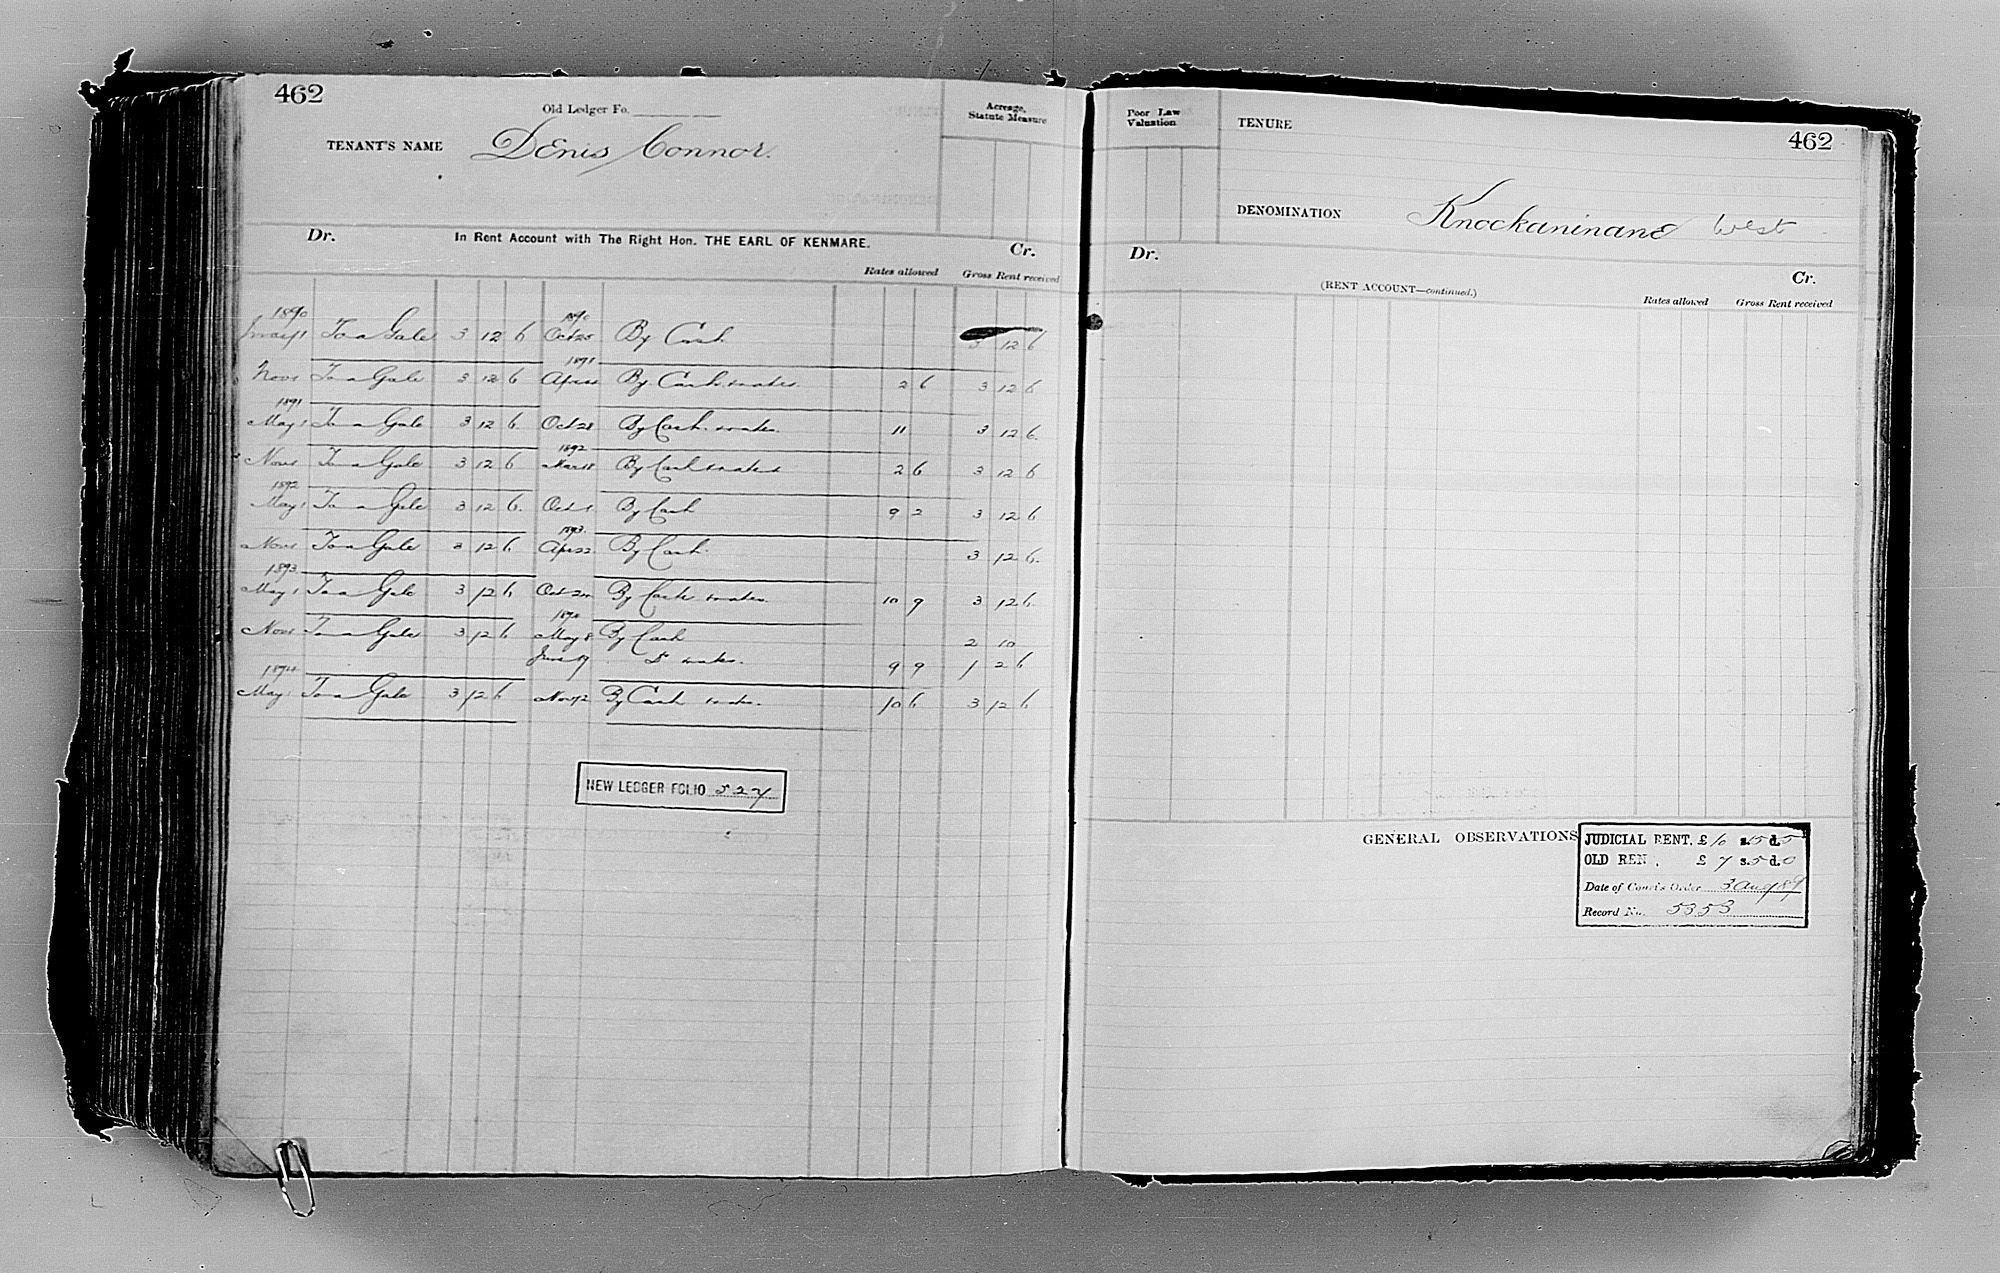 462
Old Ledger Fo.
TENANT'S NAME Denis Connor.
Acreage, Statute Measure
Dr. In Rent Account with The Right Hon. THE EARL OF KENMARE. Cr.
Rates allowed Gross Rent received
1890 1890
May 1 To a Gale 3 12 6 Oct 25 By Cash 3 12 6
1891
Nov 1 To a Gale 3 12 6 By Cash & rates 2 6 3 12 6
1891
May 1 To a Gale 3 12 6 Oct 28 By Cash & rates 11 3 12 6
1892
Nov 1 To a Gale 3 12 6 Mar 18 By Cash & rates 2 6 3 12 6
1892
May 1 To a Gale 3 12 6 Oct 1 By Cash 9 2 3 12 6
1893
Nov 1 To a Gale 3 12 6 Apr 22 By Cash 3 12 6
1893
May 1 To a Gale 3 12 6 Oct By Cash & rates 10 9 3 12 6
Nov 1 To a Gale 3 12 6 May 8 By Cash 2 10
June 19 Do & rates 9 9 1 2 6
1894
May 1 To a Gale 3 12 6 Nov 12 By Cash & rates 10 6 3 12 6
NEW LEDGER FOLIO 527
Poor Law Valuation
TENURE
462
DENOMINATION Knockaninane West
Dr. Cr.
(RENT ACCOUNT—continued.)
Rates allowed Gross Rent received
GENERAL OBSERVATIONS
JUDICIAL RENT, £ s. 15 d. 5
OLD REN . £ 7 s. 5 d. 0
Date of Court's Order 3 Aug 89
Record No. 5353